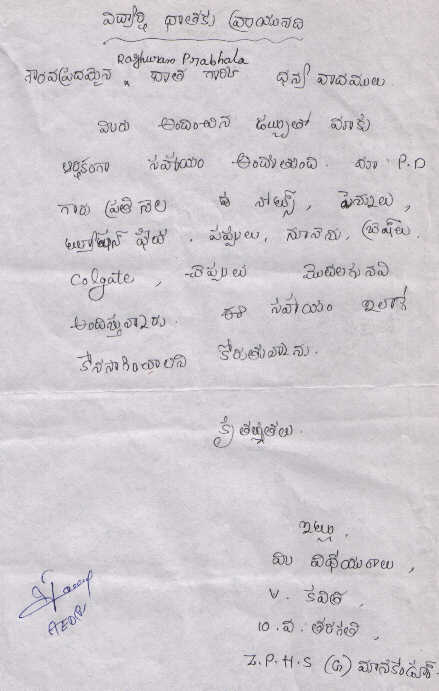 విద్యార్థి దాతకు వ్రాయునది
Raghuram Prabhala
గౌరవప్రదమైన దాత గారికి ధన్యవాదములు.
మీరు అందించిన డబ్బుతో మాకు
ఆర్థికంగా సహాయం అందుతుంది. మా P.D
గారు ప్రతి నెల నోట్సు, పెన్నులు,
పప్పులు, నూనెను, బ్రష్‌లు.
Colgate, చెప్పులు మొదలకునవి
అందిస్తున్నారు. ఈ సహాయం ఇలాగే
కొనసాగించాలని కోరుతున్నాను.
కృతజ్ఞతలు.
ఇట్లు,
మీ విధేయురాలు,
V. కవిత,
10. వ. తరగతి,
Z.P.H.S (G)
AEDP